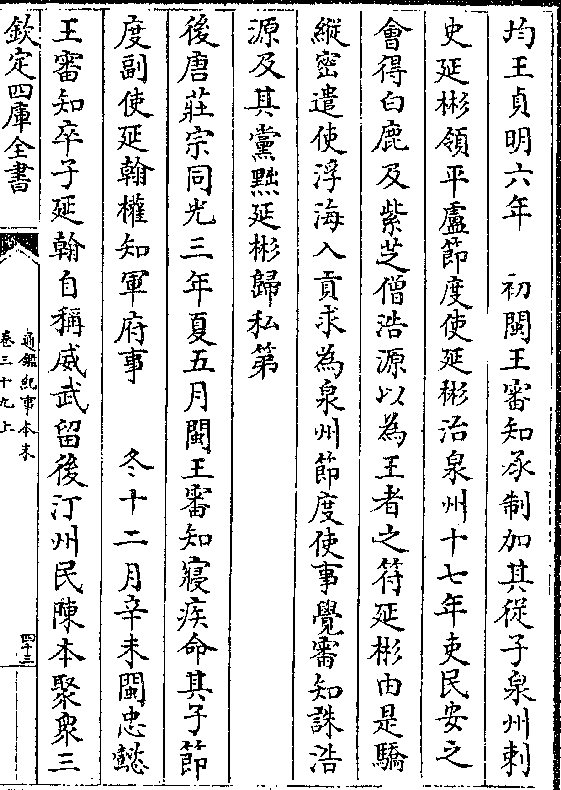 均王貞明六年　初閩王審知承制加其從子泉州刺
史延彬領平盧節度使延彬治泉州十七年吏民安之
會得白鹿及紫芝僧浩源以為王者之符延彬由是驕
縱密遣使浮海入貢求為泉州節度使事覺審知誅浩
源及其黨黜延彬歸私第
後唐莊宗同光三年夏五月閩王審知寢疾命其子節
度副使延翰權知軍府事　冬十二月辛未閩忠懿
王審知卒子延翰自稱威武留後汀州民陳本聚衆三
欽定四庫全書
通鑑紀事本末
卷三十九上
四十三